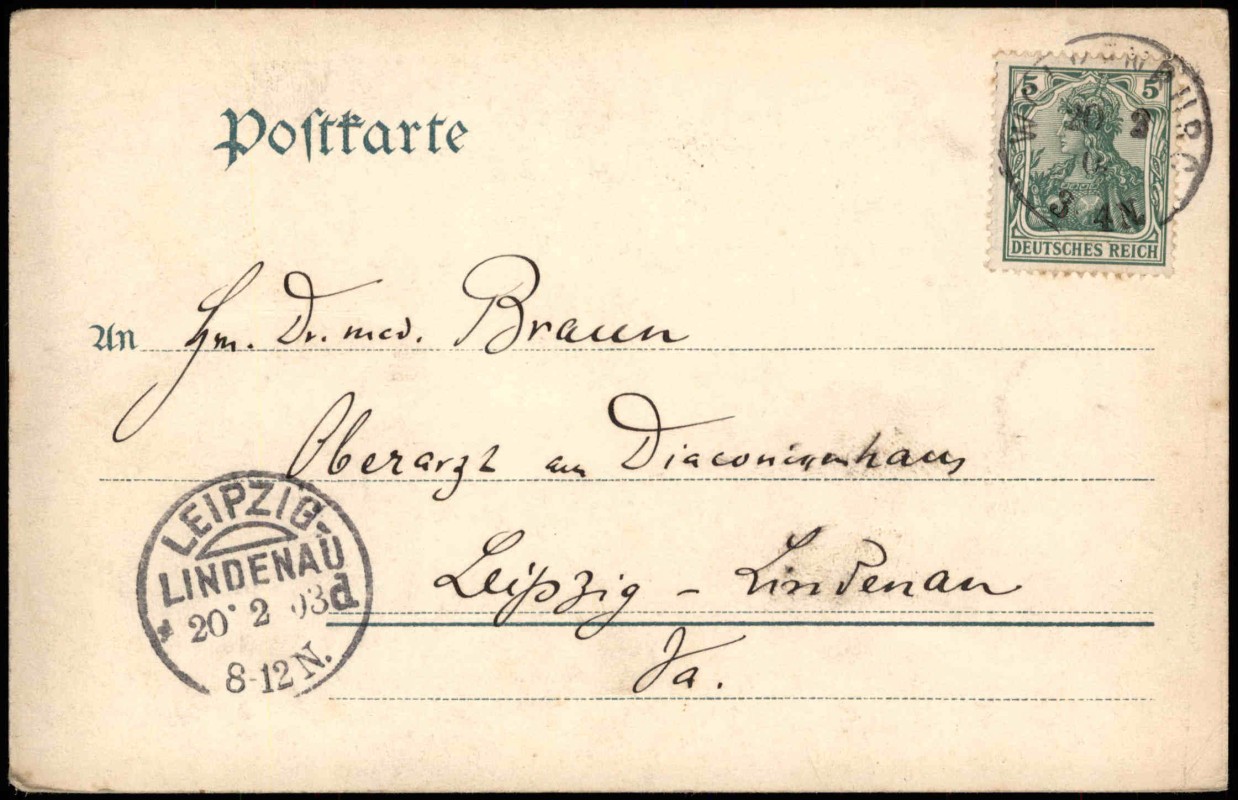 Postkarte
5 5
20 2
3 4 N
DEUTSCHES REICH
An Hrn. Dr. med. Braun
Oberarzt am Diaconissenhaus
Leipzig - Lindenau
LEIPZIG-
LINDENAU
* 20 2 03 d
8-12 N.